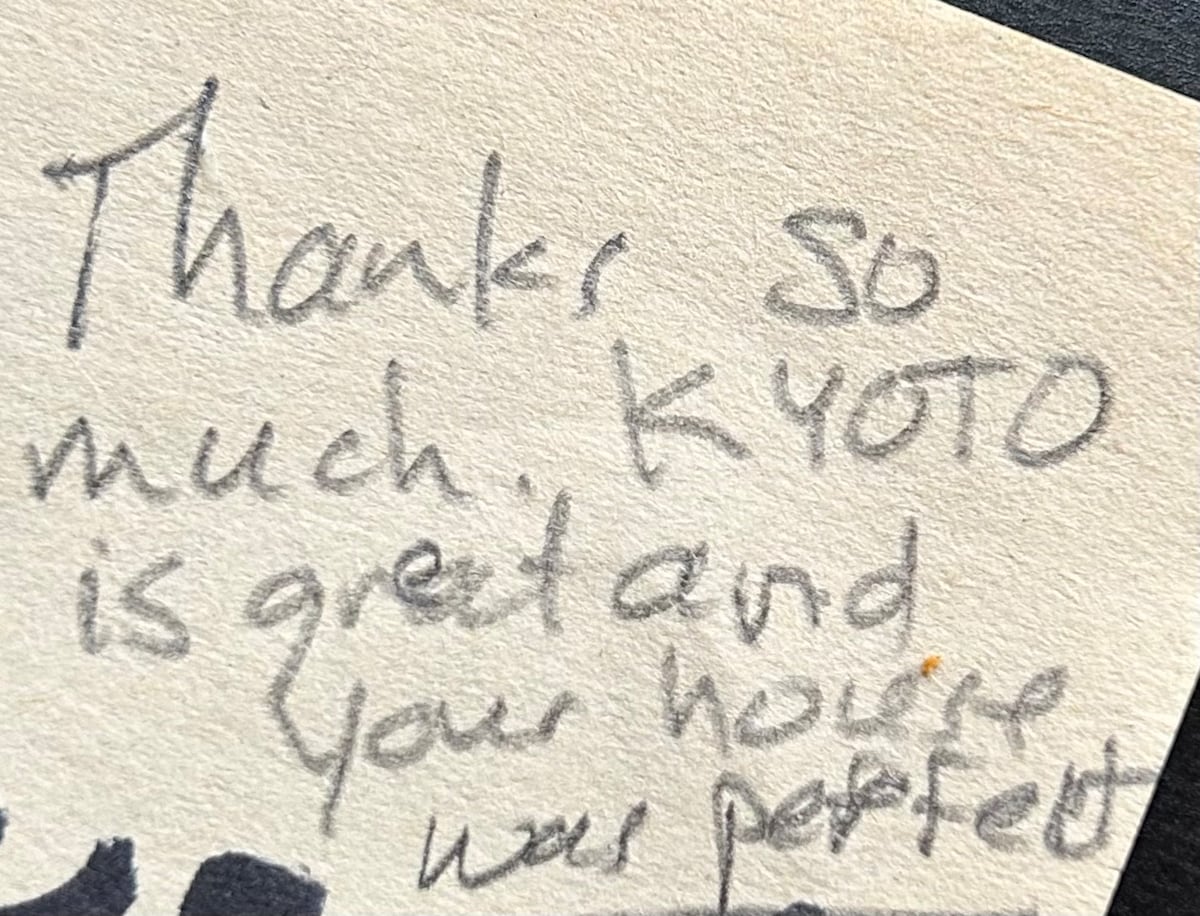 Thanks so
much. KYOTO
is great and
your house
was perfect